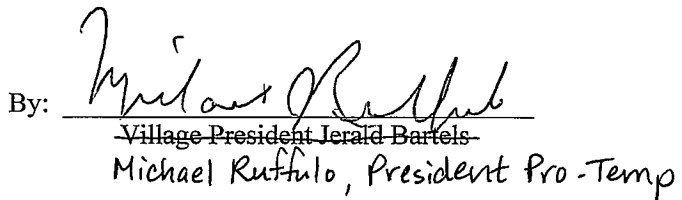 By: Michael Ruffulo
Village President Jerald Bartels
Michael Ruffulo, President Pro-Temp